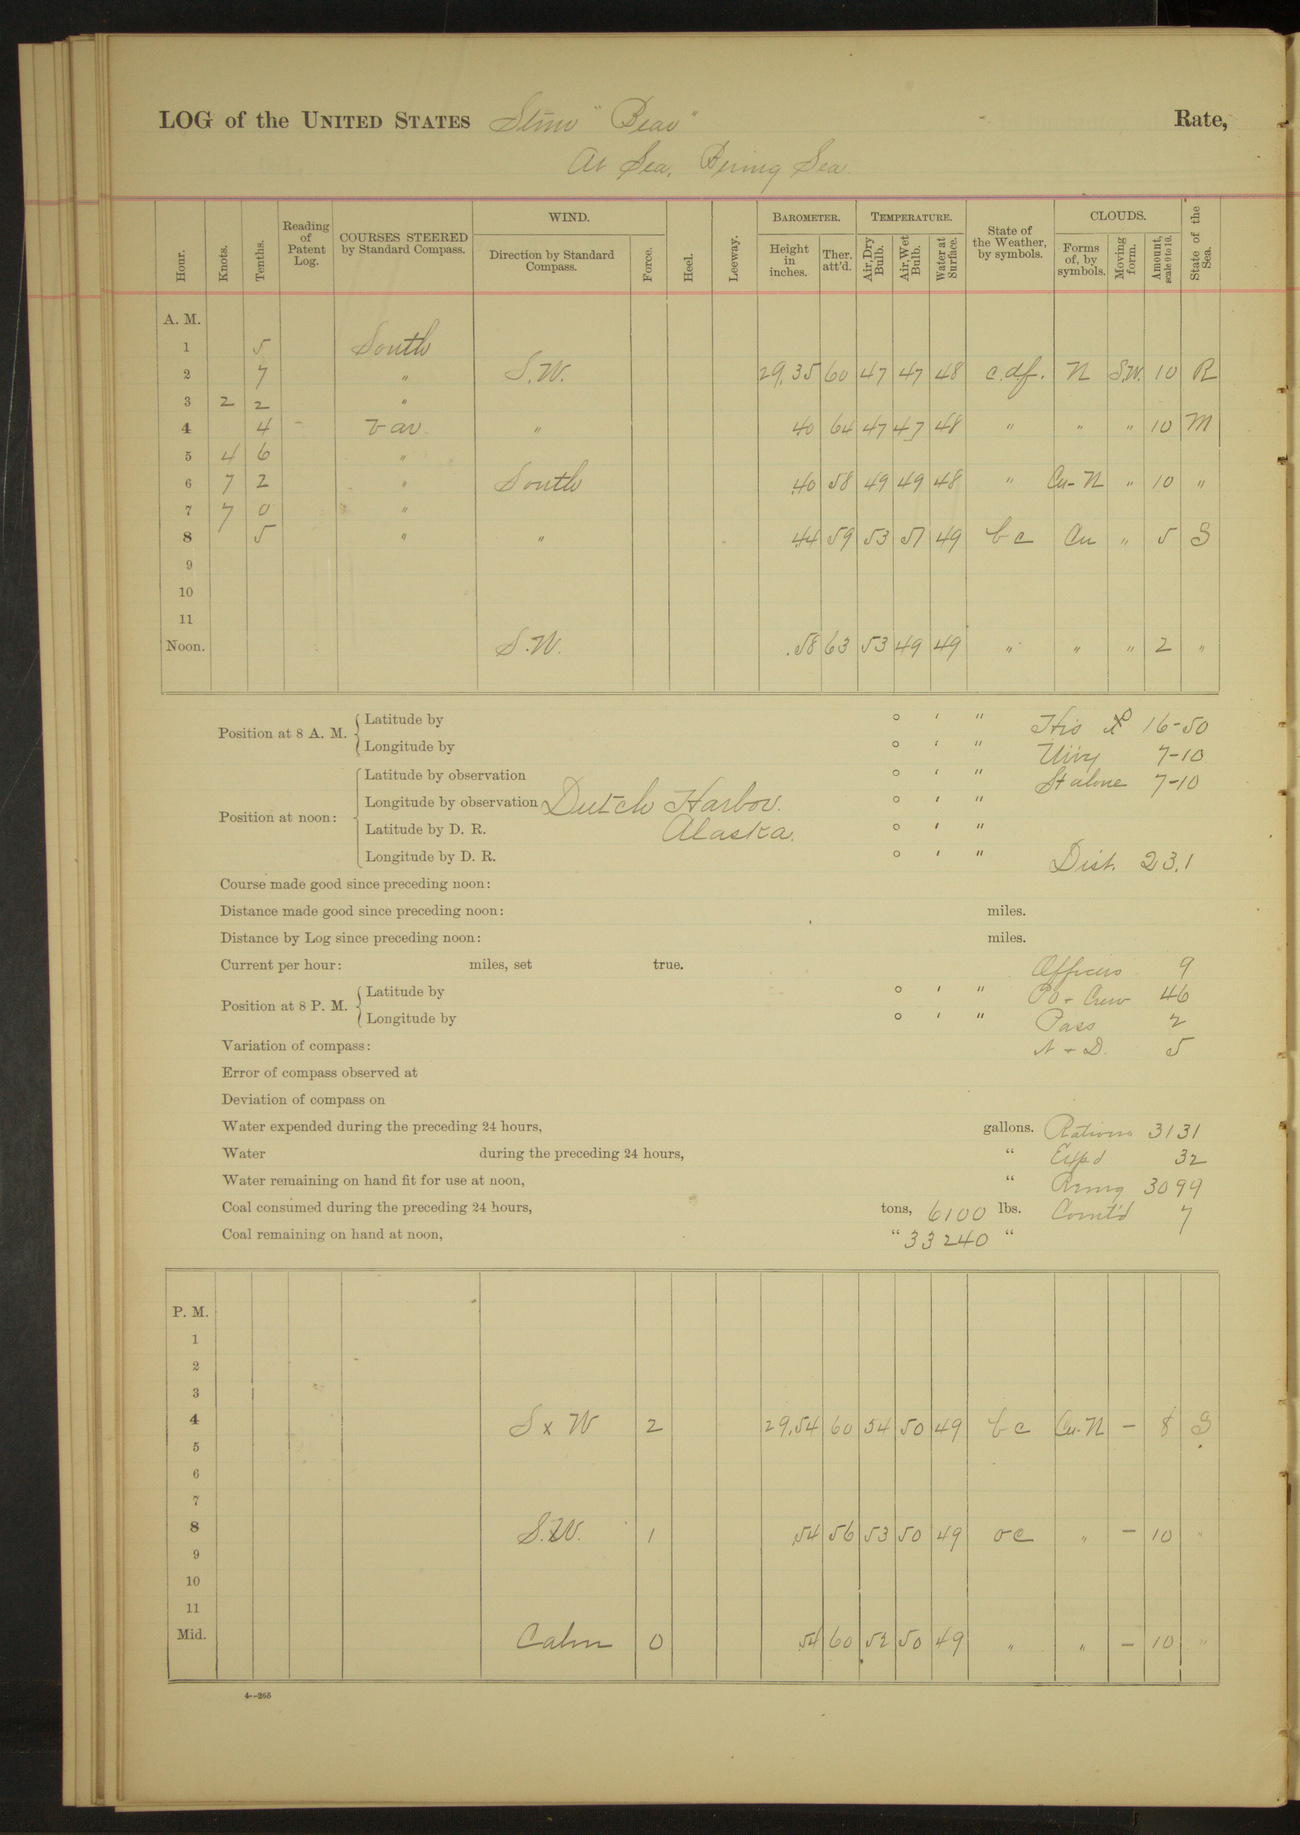 LOG of the UNITED STATES Stmr "Bear" Rate,
At Sea, Bering Sea.
Hour. Knots. Tenths. Reading of Patent Log. COURSES STEERED by Standard Compass. WIND. Direction by Standard Compass. Force. Heel. Leeway. BAROMETER. Height in inches. Ther. att'd. TEMPERATURE. Air, Dry Bulb. Air, Wet Bulb. Water at Surface. State of the Weather, by symbols. CLOUDS. Forms of, by symbols. Moving form. Amount, scale 0 to 10. State of the Sea.
A. M.
1 5 South
2 7 " S.W. 29.35 60 47 47 48 c.df. N S.W. 10 R
3 2 2 "
4 4 - Var. " 40 64 47 47 48 " " " 10 M
5 4 6 "
6 7 2 " South .40 58 49 49 48 " Cu-N " 10 "
7 7 0 "
8 5 " " .44 59 53 51 49 bc Cu " 5 S
9
10
11
Noon. S.W. .58 63 53 49 49 " " " 2 "
Position at 8 A. M. Latitude by ° ′ ″ 16-50
Longitude by ° ′ ″ 7-10
Position at noon: Latitude by observation ° ′ ″ 7-10
Longitude by observation Dutch Harbor. ° ′ ″
Latitude by D. R. Alaska. ° ′ ″
Longitude by D. R. ° ′ ″ Dist. 23.1
Course made good since preceding noon:
Distance made good since preceding noon: miles.
Distance by Log since preceding noon: miles.
Current per hour: miles, set true. Officers 9
Position at 8 P. M. Latitude by ° ′ ″ PO + Crew 46
Longitude by ° ′ ″ Pass 2
Variation of compass: N + D. 5
Error of compass observed at
Deviation of compass on
Water expended during the preceding 24 hours, gallons. Rations 3131
Water during the preceding 24 hours, " Exp'd 32
Water remaining on hand fit for use at noon, " Remg 3099
Coal consumed during the preceding 24 hours, tons, 6100 lbs. Comt'd 7
Coal remaining on hand at noon, " 33240 "
P. M.
1
2
3
4 S x W 2 29.54 60 54 50 49 bc Cu-N - 8 S
5
6
7
8 S.W. 1 .54 56 53 50 49 oc " - 10 "
9
10
11
Mid. Calm 0 .54 60 52 50 49 " " - 10 "
4--265